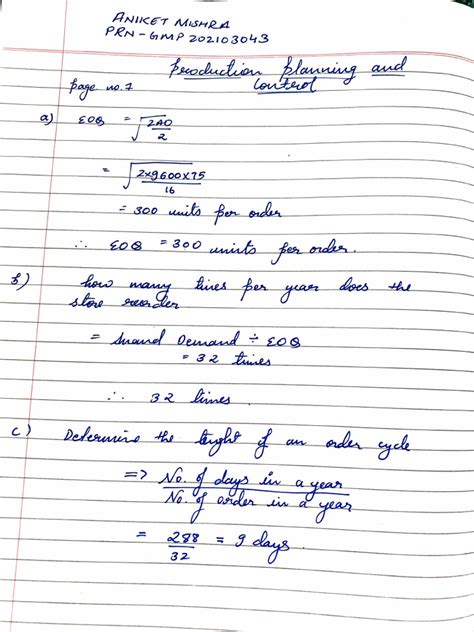 ANIKET MISHRA
PRN-GMP202103043
Production planning and
control
page no. 7
a) EOQ = √2AO/2
= √2×9600×75/16
= 300 units per order
∴ EOQ = 300 units per order.
b) how many times per year does the
store reorder
= Anand Demand ÷ EOQ
= 32 times
∴ 32 times
c) Determine the lenght of an order cycle
=> No. of days in a year
No. of order in a year
= 288/32 = 9 days.